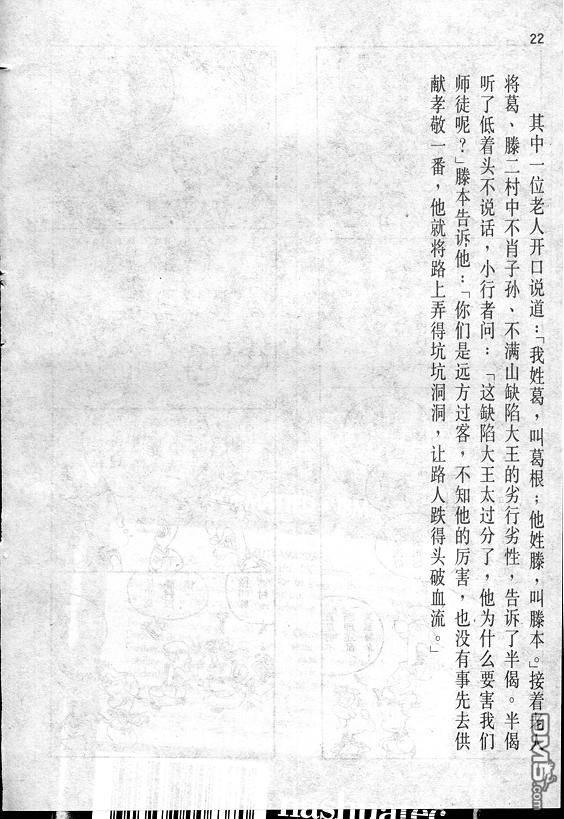 22
其中一位老人开口说道：「我姓葛，叫葛根；他姓滕，叫滕本。」接着老人
将葛、滕二村中不肖子孙、不满山缺陷大王的劣行劣性，告诉了半偈。半偈
听了低着头不说话，小行者问：「这缺陷大王太过分了，他为什么要害我们
师徒呢？」滕本告诉他：「你们是远方过客，不知他的厉害，也没有事先去供
献孝敬一番，他就将路上弄得坑坑洞洞，让路人跌得头破血流。」